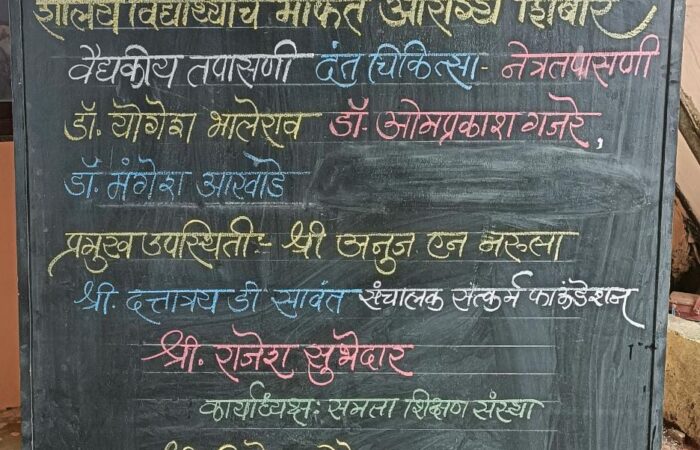 शालेय विद्यार्थ्यांचे मोफत आरोग्य शिबीर
वैद्यकीय तपासणी दंत चिकित्सा- नेत्रतपासणी
डॉ. योगेश भालेराव डॉ. ओमप्रकाश गजरे,
डॉ. मंगेश आखाडे
प्रमुख उपस्थिती:- श्री अनुज एन नरुला
श्री. दत्तात्रय डी सावंत संचालक सत्कर्म फाऊंडेशन
श्री. राजेश सुभेदार
कार्याध्यक्ष: समता शिक्षण संस्था